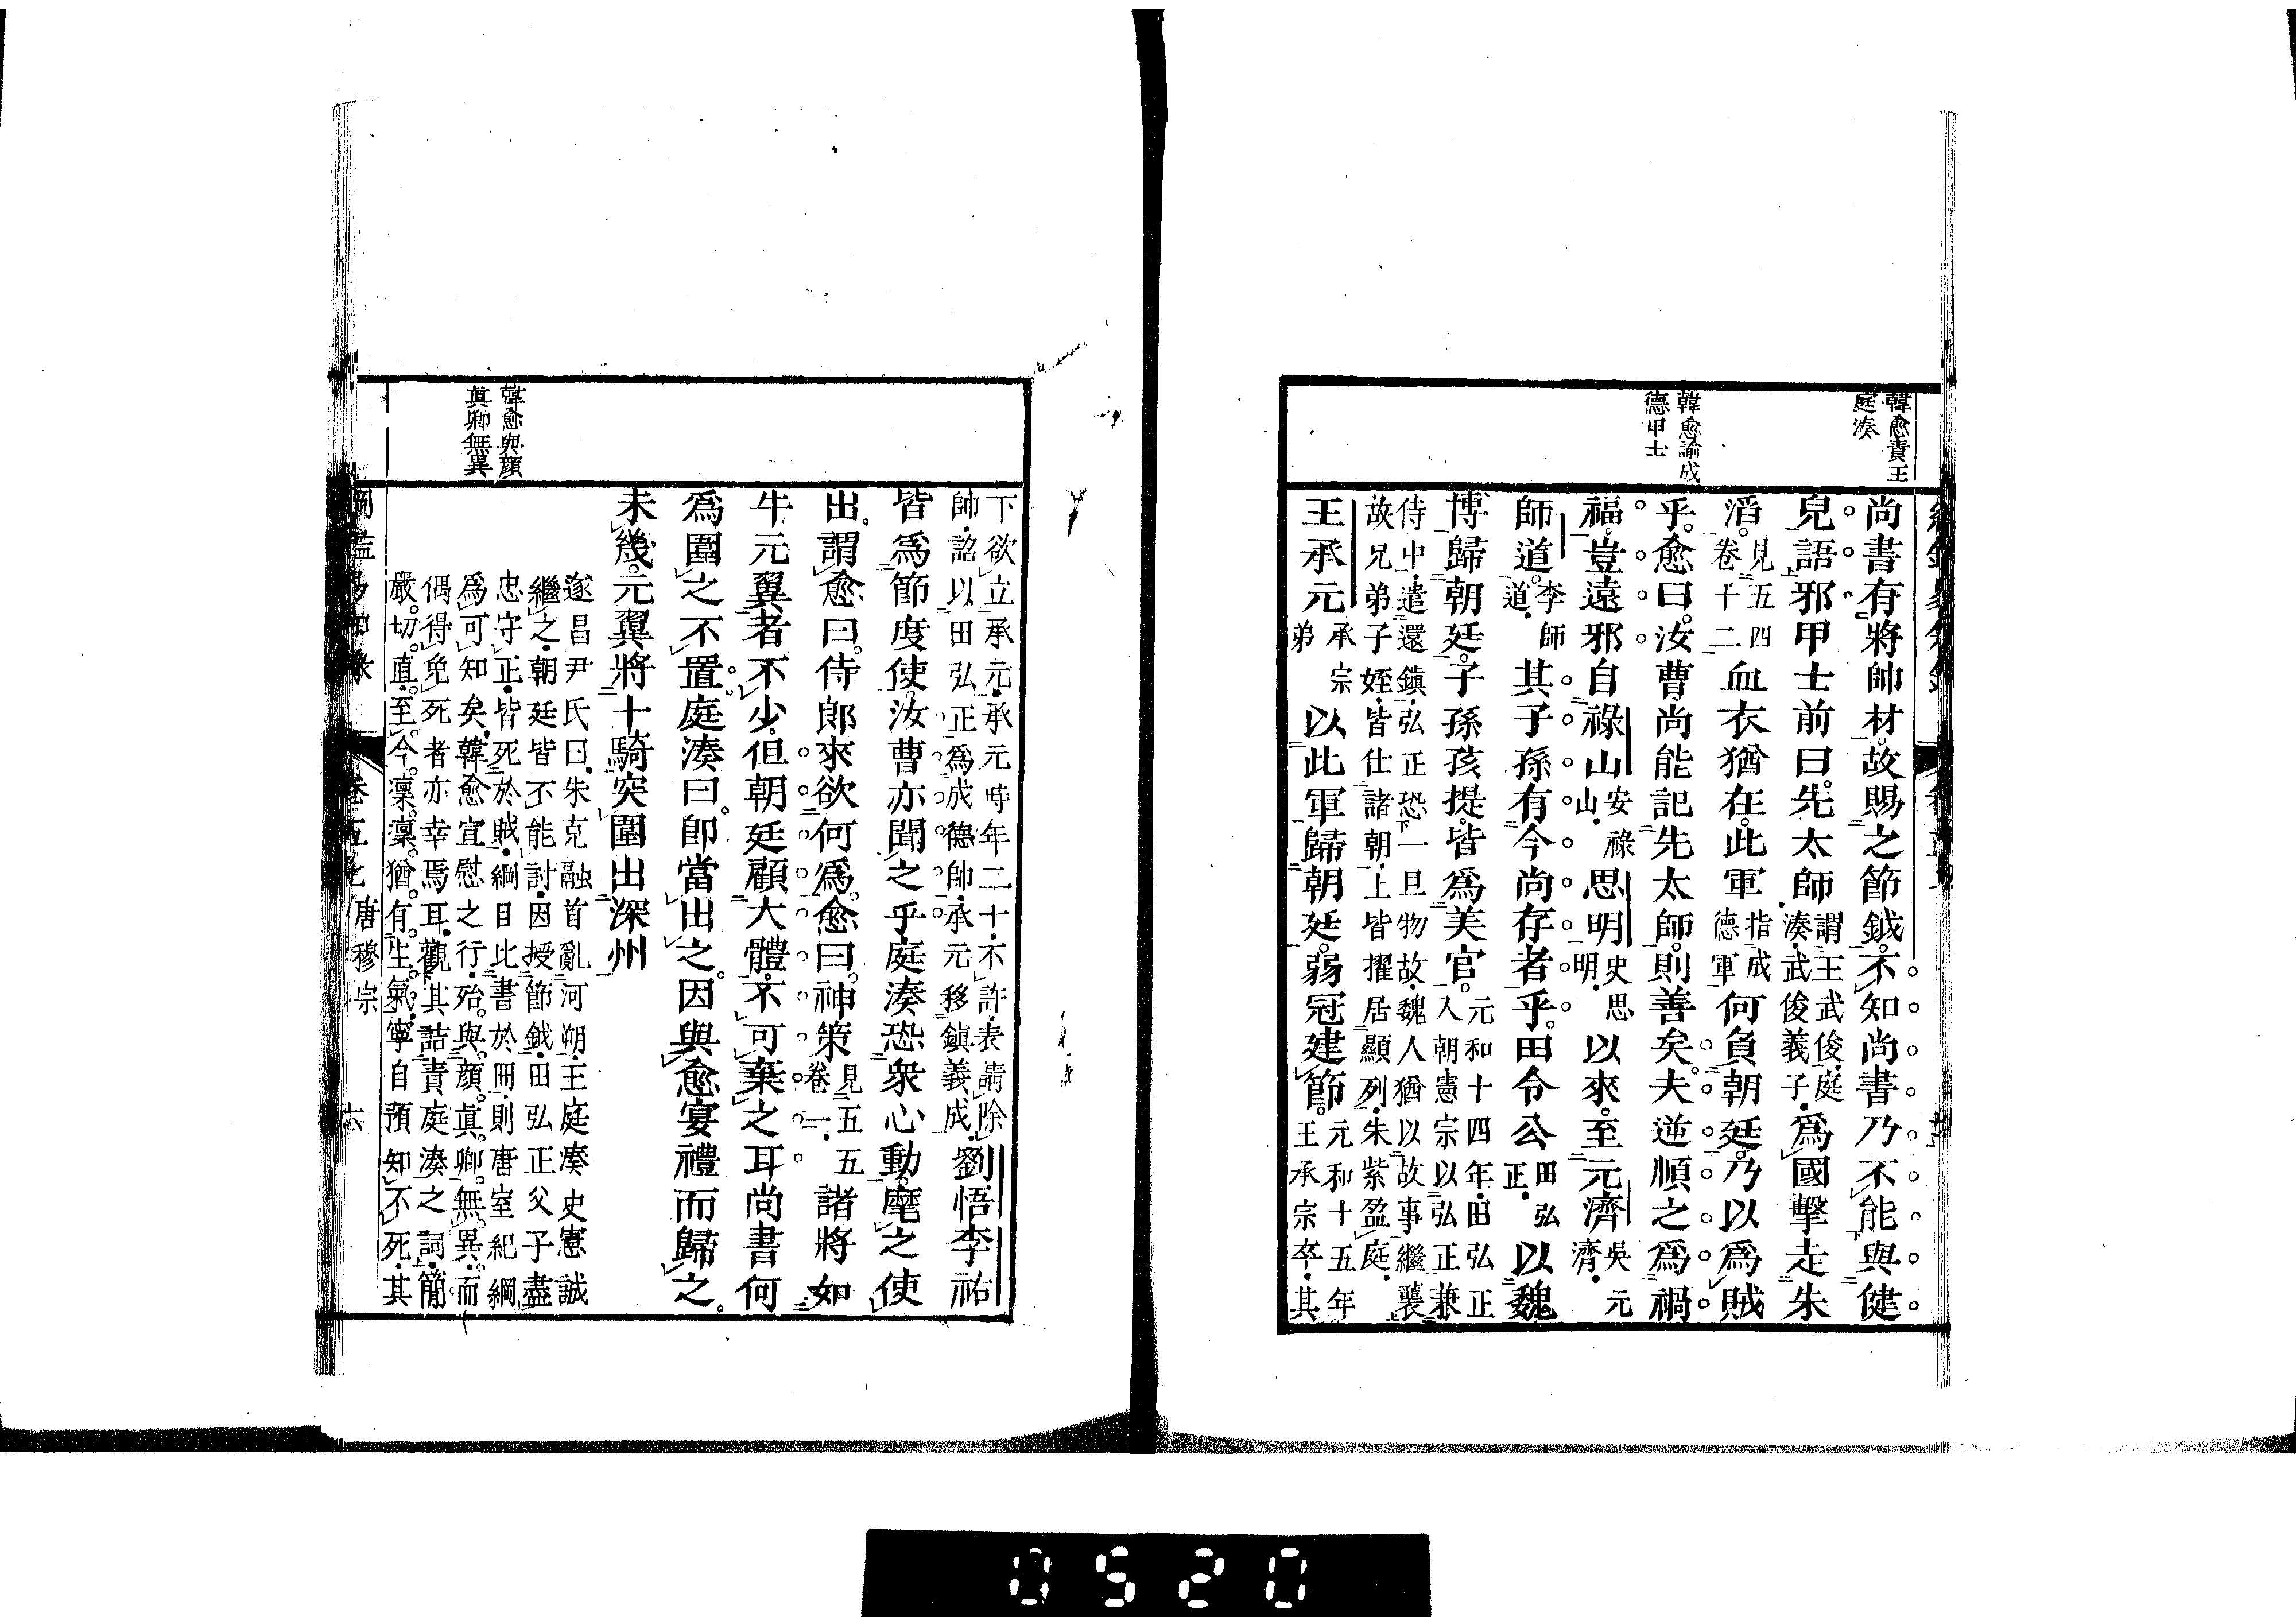 韓愈責王
庭湊
韓愈諭成
德甲士
尚書有將帥材故賜之節鉞不知尚書乃不能與健
兒語邪甲士前曰先太師謂王武俊庭湊武俊義子爲國擊走朱
滔見五四卷十二血衣猶在此軍指成德軍何負朝廷乃以爲賊
乎愈曰汝曹尚能記先太師則善矣夫逆順之爲禍
福豈遠邪自祿山安祿山思明史思明以來至元濟吳元濟
師道李師道其子孫有今尚存者乎田令公田弘正以魏
博歸朝廷子孫孩提皆爲美官元和十四年田弘正入朝憲宗以弘正兼
侍中遣還鎮弘正恐一旦物故魏人猶以故事繼襲
故兄弟子姪皆仕諸朝上皆擢居顯列朱紫盈庭
王承元承宗弟以此軍歸朝廷弱冠建節元和十五年王承宗卒其
下欲立承元承元時年二十不許表請除
帥詔以田弘正爲成德帥承元移鎮義成劉悟李祐
皆爲節度使汝曹亦聞之乎庭湊恐衆心動麾之使
出謂愈曰侍郎來欲何爲愈曰神策見五五卷一諸將如
牛元翼者不少但朝廷顧大體不可棄之耳尚書何
爲圍之不置庭湊曰卽當出之因與愈宴禮而歸之
未幾元翼將十騎突圍出深州
韓愈與顔
眞卿無異
遂昌尹氏曰朱克融首亂河朔王庭湊史憲誠
繼之朝廷皆不能討因授節鉞田弘正父子盡
忠守正皆死於賊綱目比書於冊則唐室紀綱
爲可知矣韓愈宣慰之行殆與顔眞卿無異而
偶得免死者亦幸焉耳觀其詰責庭湊之詞簡
嚴切直至今凜凜猶有生氣寧自預知不死其
卷五七 唐穆宗 六
0520